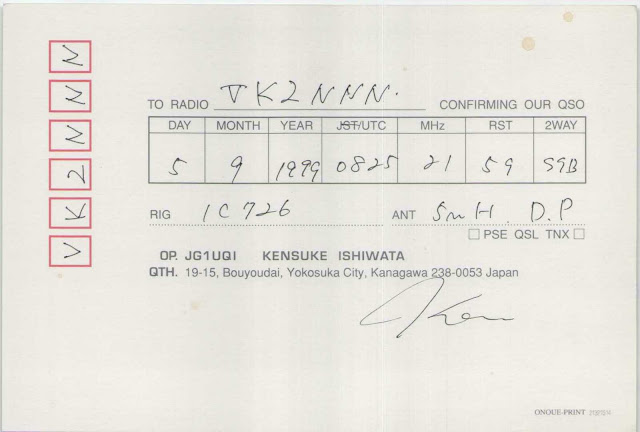 VK2NNN
TO RADIO VK2NNN. CONFIRMING OUR QSO
DAY MONTH YEAR JST/UTC MHz RST 2WAY
5 9 1999 0825 21 59 SSB
RIG IC726 ANT 5mH D.P
PSE QSL TNX
OP. JG1UQI KENSUKE ISHIWATA
QTH. 19-15, Bouyoudai, Yokosuka City, Kanagawa 238-0053 Japan
Ken
ONOUE-PRINT